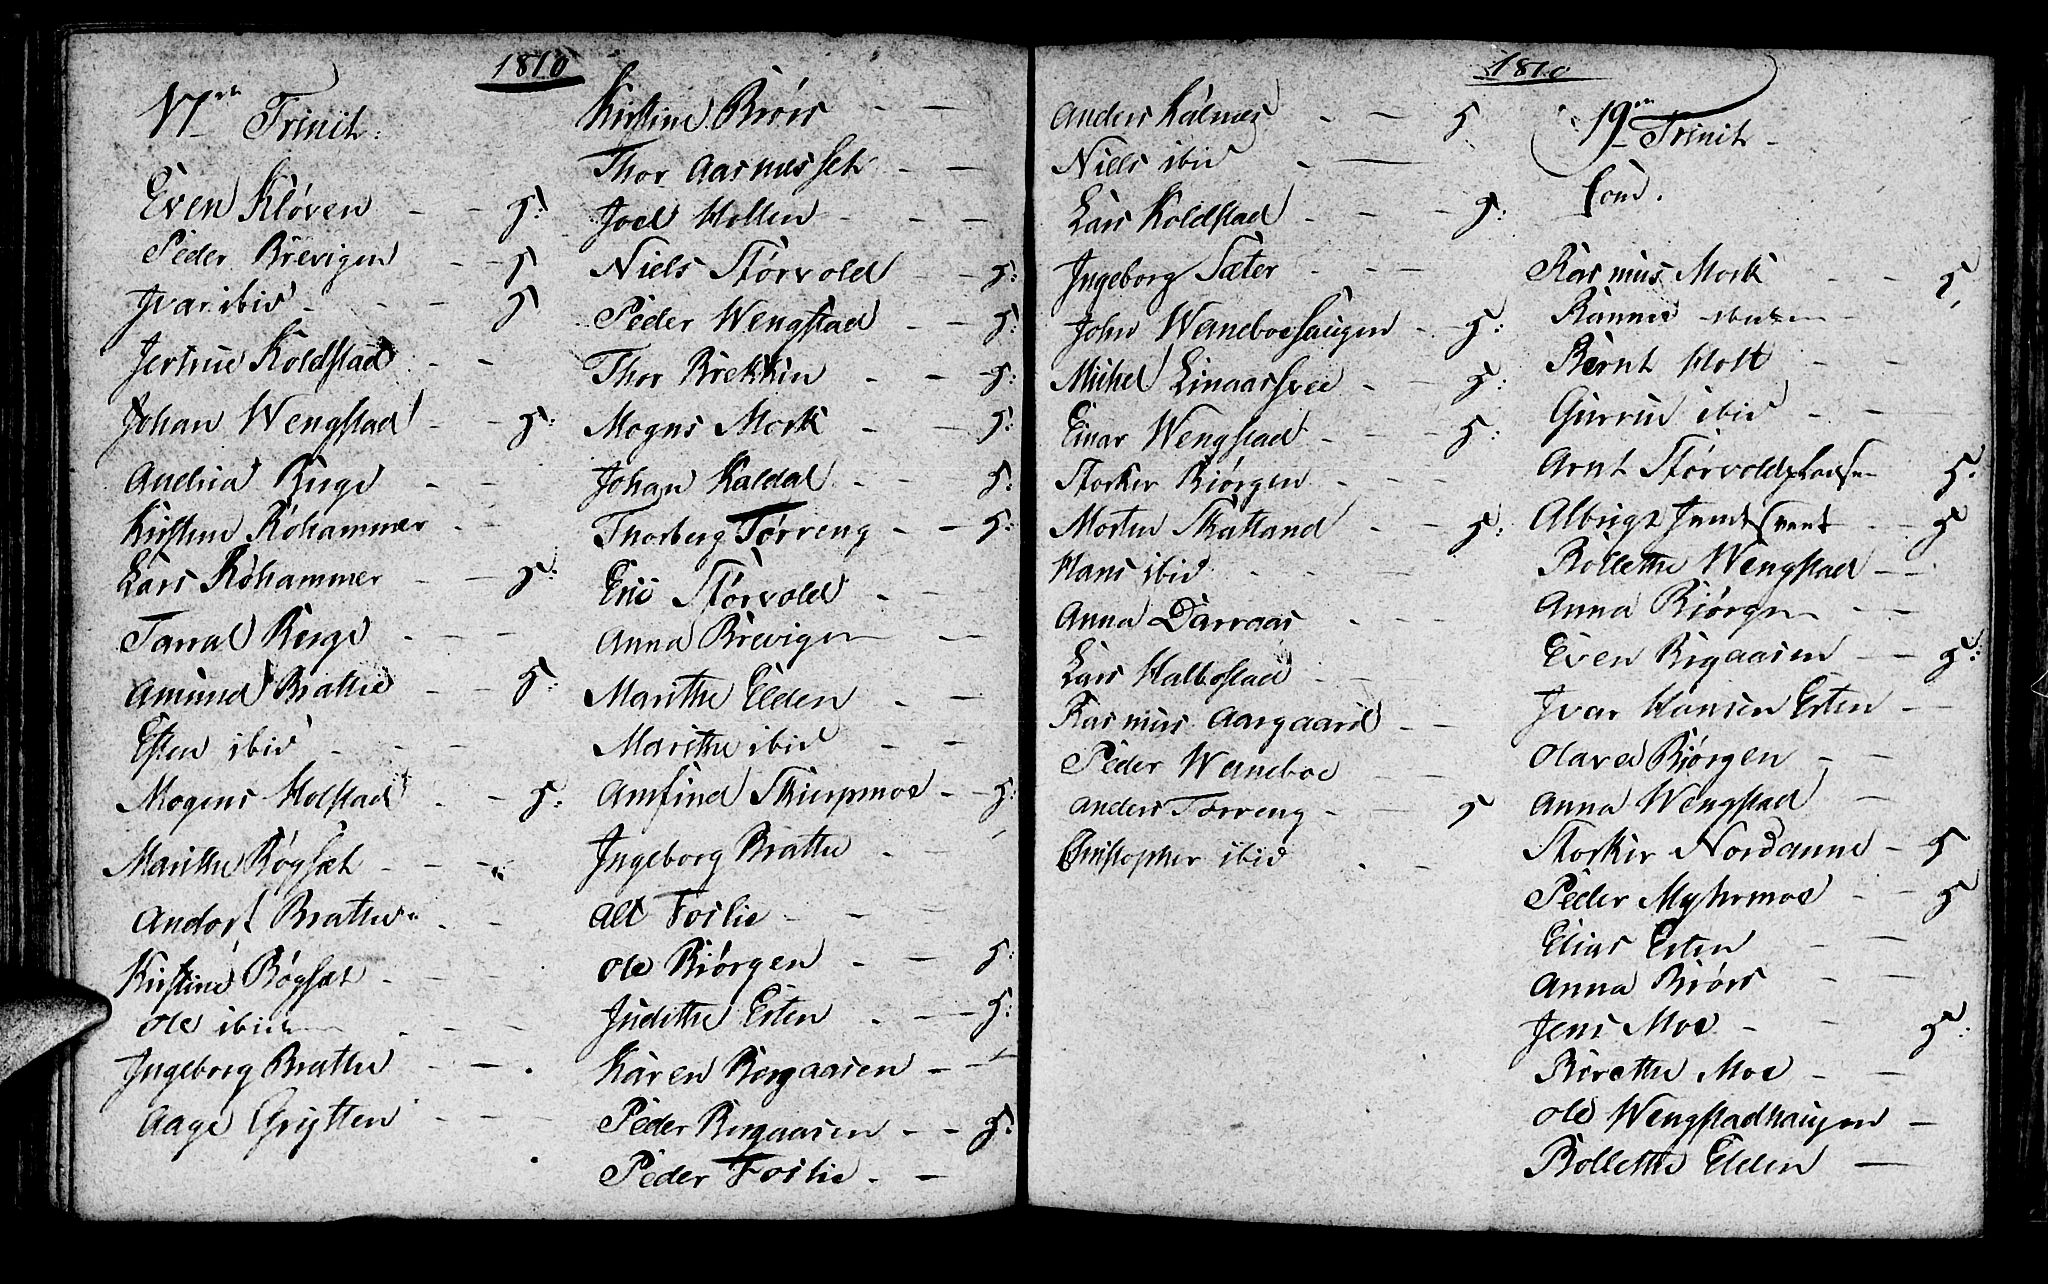 1810
17de Trinit:
Even Kløven - - 5:
Peder Brevigen - - 5
Ivar ibid - - - 5
Jertrue Koldstad - -
Johan Wengstad - - 5:
Andrea Berge - -
Kirstine Røhammer - -
Lars Røhammer - - 5:
Tarral Berge - - -
Amund Brattre - - 5:
Esten ibid - - -
Mogens Holstad - - 5:
Marithe Røgset - -
Andor Brattre - -
Kirstine Røgset - -
Ole ibid - -
Ingeborg Brattre - -
Aage Grytten - - -
Kirstine Biørs - -
Thor Aasmusset - -
Joel Hollen - - -
Niels Størvold - - 5:
Peder Wengstad - - 5:
Thor Brekkin - - 5:
Mogns Mork - - 5:
Johan Kaldal - - 5:
Thorberg Tørreng - - 5:
Eric Størvold - -
Anna Brevigen -
Marithe Elden - -
Marithe ibid - -
Amfind Skiepmoe - - 5:
Ingeborg Brattre - -
Alt Foslie - - -
Ole Biørgen - - 5:
Judithe Esten - - 5:
Karen Bergaasen - -
Peder Bergaasen - - 5:
Peder Foslie - -
1810
Anders Kalmes - - 5
Niels ibid - -
Lars Koldstad - - - 5:
Ingeborg Sæter - - -
John Werneboehaugen - - 5:
Michel Linaassvee - - 5:
Einar Wengstad - - - 5:
Storker Biørgen - - -
Morten Skatland - - 5:
Hans ibid - - -
Anna Darraas - - -
Lars Halbostad - -
Rasmus Aargaard - -
Peder Werneboe - -
Anders Tørreng - - - 5
Christopher ibid - -
19de Trinit -
Com.
Rasmus Mork - - 5
Rannes ibidem -
Bernt Holt - -
Gurrue ibid - - -
Arnt Størvold 5:
Albrigt - - 5
Bollethe Wengstad - -
Anna Biørgen - -
Even Bergaasen - - 5:
Ivar Hansen Esten - -
Olava Biørgen - -
Anna Wengstad -
Storker Nordaune - 5
Peder Myhrmoe - - 5
Elias Esten - -
Anna Biørs - -
Jens Moe - - 5:
Berethe Moe - -
Ole Wengstadhaugen -
Bollethe Elden -